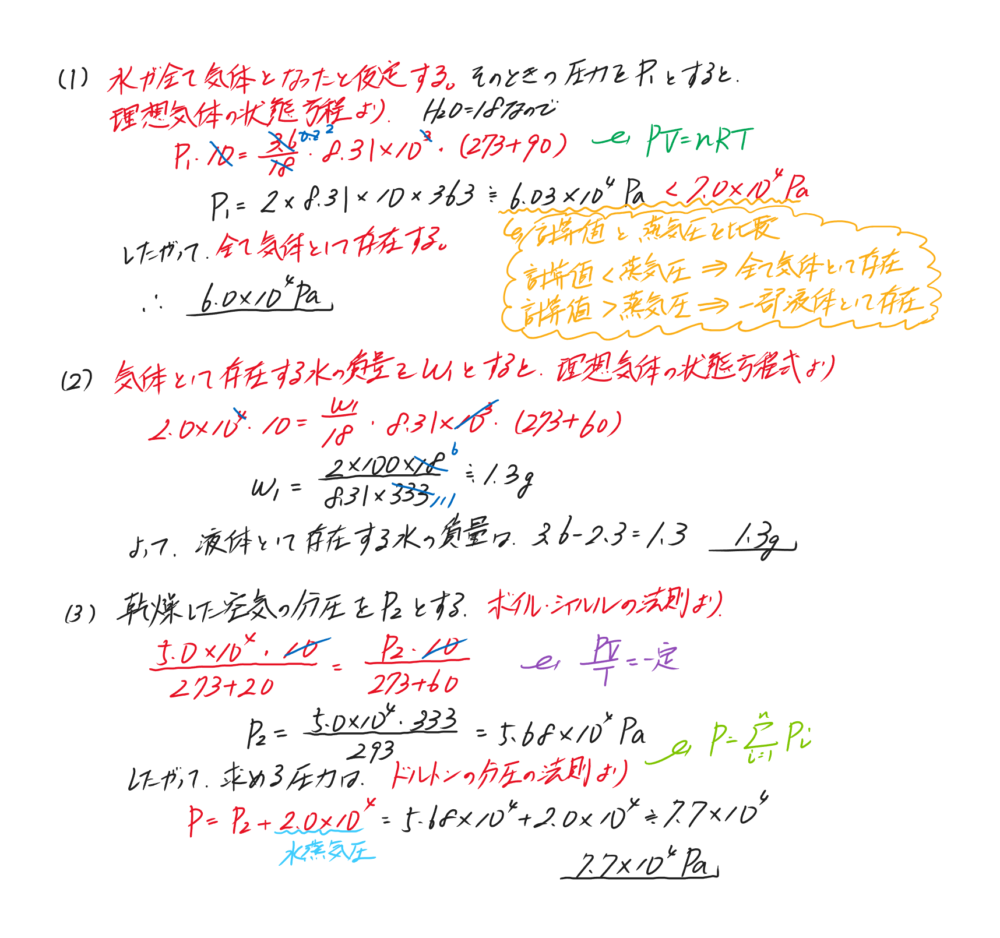 (1) 水が全て気体となったと仮定する。そのときの圧力をP₁とすると、
理想気体の状態方程より、 H₂O=18なので
P₁・10 = 3.6/18 ・8.31×10³・(273+90) PV=nRT
P₁ = 2×8.31×10×363 ≒ 6.03×10⁴ Pa < 7.0×10⁴ Pa
計算値と蒸気圧を比較
したがって、全て気体として存在する。
計算値<蒸気圧 ⇒ 全て気体として存在
∴ 6.0×10⁴ Pa
計算値>蒸気圧 ⇒ 一部液体として存在
(2) 気体として存在する水の質量をW₁とすると、理想気体の状態方程式より
2.0×10⁴・10 = W₁/18 ・8.31×10³・(273+60)
W₁ = 2×100×18/8.31×333 ≒ 1.3g
6
111
よって、液体として存在する水の質量は、3.6-2.3=1.3 1.3g
(3) 乾燥した空気の分圧をP₂とする。ボイル・シャルルの法則より、
5.0×10⁴・10/273+20 = P₂・10/273+60 PV/T=一定
P₂ = 5.0×10⁴・333/293 = 5.68×10⁴ Pa P=Σⁿᵢ₌₁Pᵢ
したがって、求める圧力は、ドルトンの分圧の法則より
P = P₂+2.0×10⁴ = 5.68×10⁴+2.0×10⁴ ≒ 7.7×10⁴
水蒸気圧
7.7×10⁴ Pa